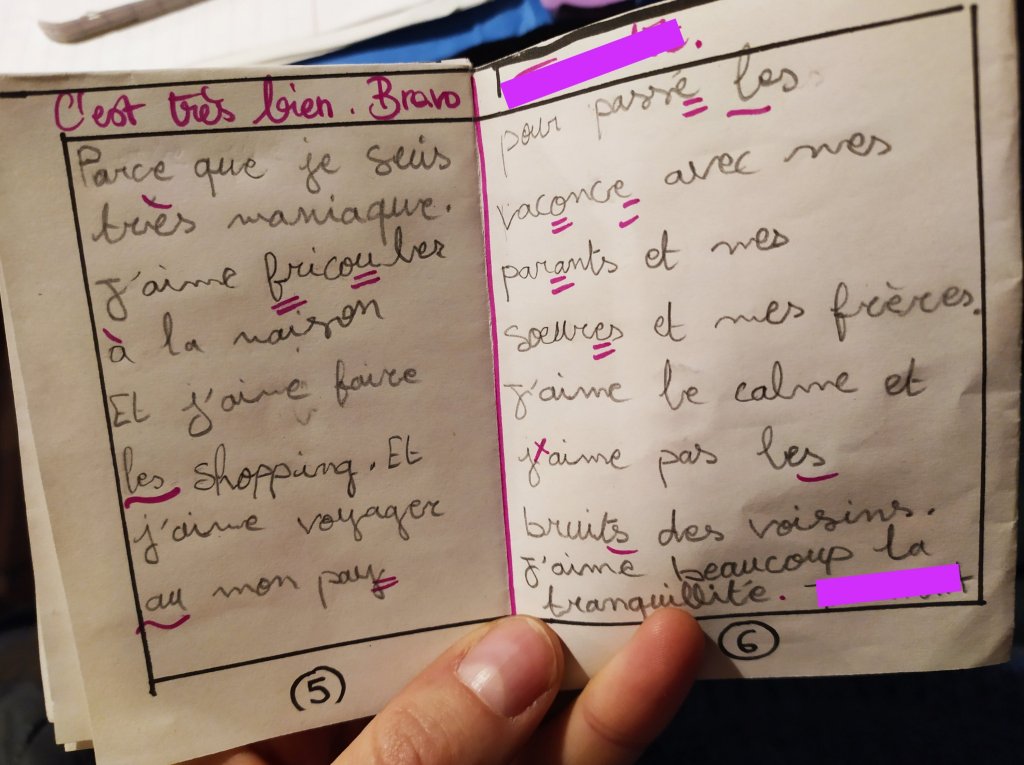 C'est très bien. Bravo
Parce que je suis
très maniaque.
J'aime fricouler
à la naison
Et j'aime faire
les shopping. Et
j'aime voyager
au mon pay
5
pour passé les
vaconce avec mes
parants et mes
soeures et mes frères.
J'aime le calme et
j'aime pas les
bruits des voisins.
J'aime beaucoup la
tranquillité.
6